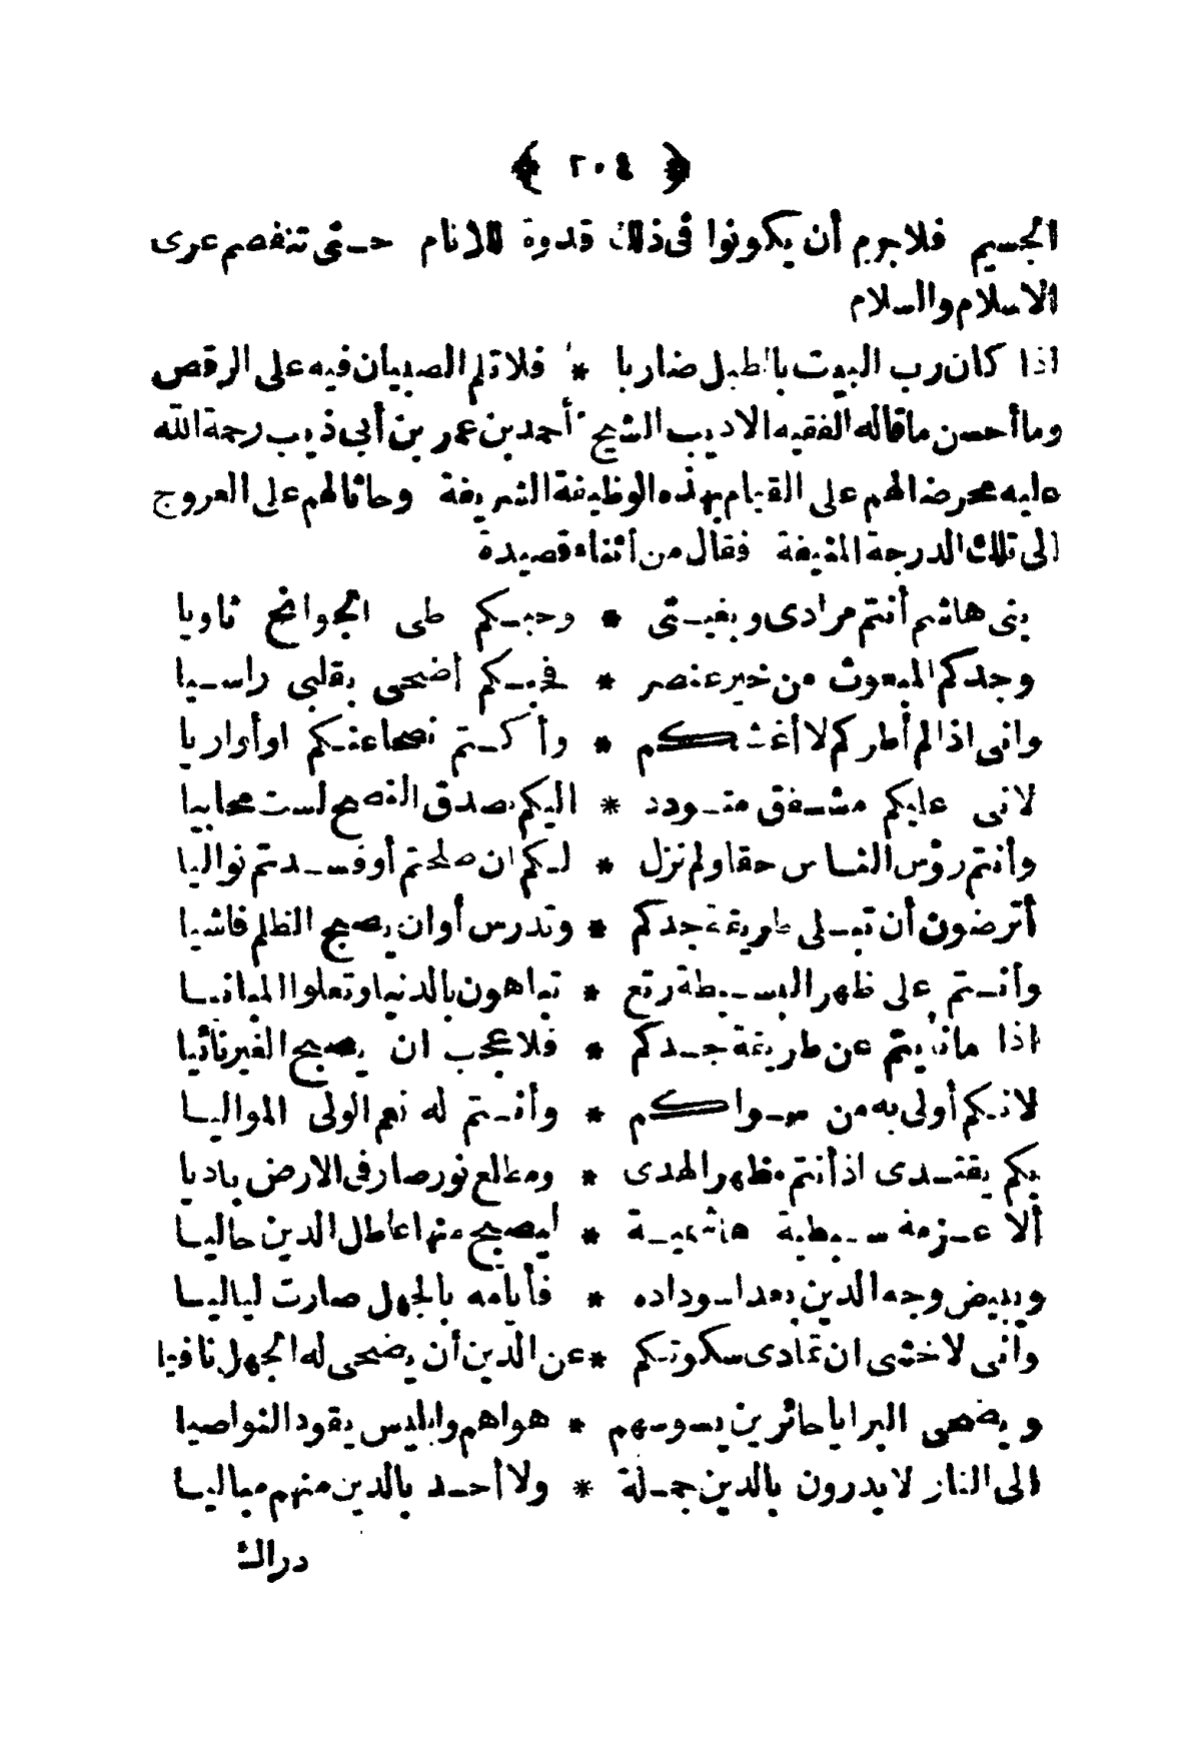 ﴿ ٢٠٤ ﴾
الجسيم فلاجرم أن يكونوا فى ذلك قدوة للانام حـتى تنفصم عرى
الاسلام والسلام
اذا كان رب البيت بالطبل ضاربا * فلا تلم الصبيان فيه على الرقص
وما أحسن ما قاله الفقيه الاديب الشيخ أحمد بن عمر بن أبى ذيب رحمة الله
عليه محرضا لهم على القيام بهذه الوظيفة الشريفة وحاثا لهم على العروج
الى تلك الدرجة المنيفة فقال من أثناء قصيدة
بنى هاشم أنتم مرادى وبغيـتى * وحبـكم طى الجوانح ثاويا
وجدكم المبعوث من خير عنصر * فحبـكم أضحى بقلبى راسـيا
وانى اذا لم أطركم لا أغشكم * وأكـتم نصحا عنـكم اوأواريا
لانى عليكم مشـفق متـودد * اليكم بصدق النصح لست محابيا
وأنتم رؤس النـاس حقا ولم نزل * لـكم ان صلحتم أو فسـدتم نواليا
أترضون أن تبـلى طريقة جدكم * وتدرس أوان يصبح الظلم فاشيا
وأنـتم على ظهر البسـيطة رتع * تباهون بالدنيا وتعلوا المبانيـا
اذا ما نأيتم عن طريقة جـدكم * فلا عجب ان يصبح الغير نائيا
لانـكم أولى به من سـواكم * وأنـتم له نعم الولى المواليـا
بكم يقتـدى اذ أنتم مظهر الهدى * ومطلع نور صار فى الارض باديا
ألا عـزمة سـبطية هاشميـة * ليصبح منها عاطل الدين حاليـا
ويبيض وجه الدين بعد اسـوداده * فأيامه بالجهل صارت لياليـا
وانى لاخشى ان تمادى سكوتـكم * عن الدين أن يضحى له الجهل نافيا
ويضحى البرايا حائرين يسوسهم * هواهم وابليس يقود النواصيا
الى النار لا يدرون بالدين جمـلة * ولا أحـد بالدين منهم مباليـا
دراك